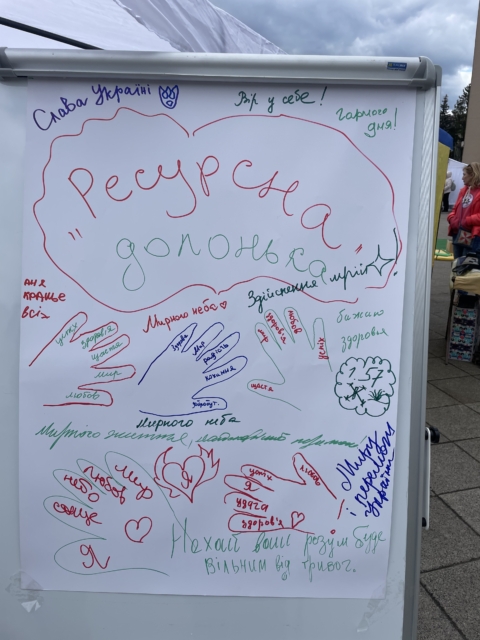 Слава Україні
Вір у себе!
Гарного
дня!
"Ресурсна
долонька"
Здійснення мрій!
все
краще
всіх
Мирного неба
бажаю
здоров'я
успіх
здоров'я
щастя
мир
любов
Мир
радість
кохання
мир
здоров'я
любов
щастя
157
Мирного неба
Мирного життя,
Миру
і перемоги
Україні!
сонце
небо
любов
мир
Я
Я
успіх
Я
удача
здоров'я
Нехай ваш розум буде
вільним від тривог.